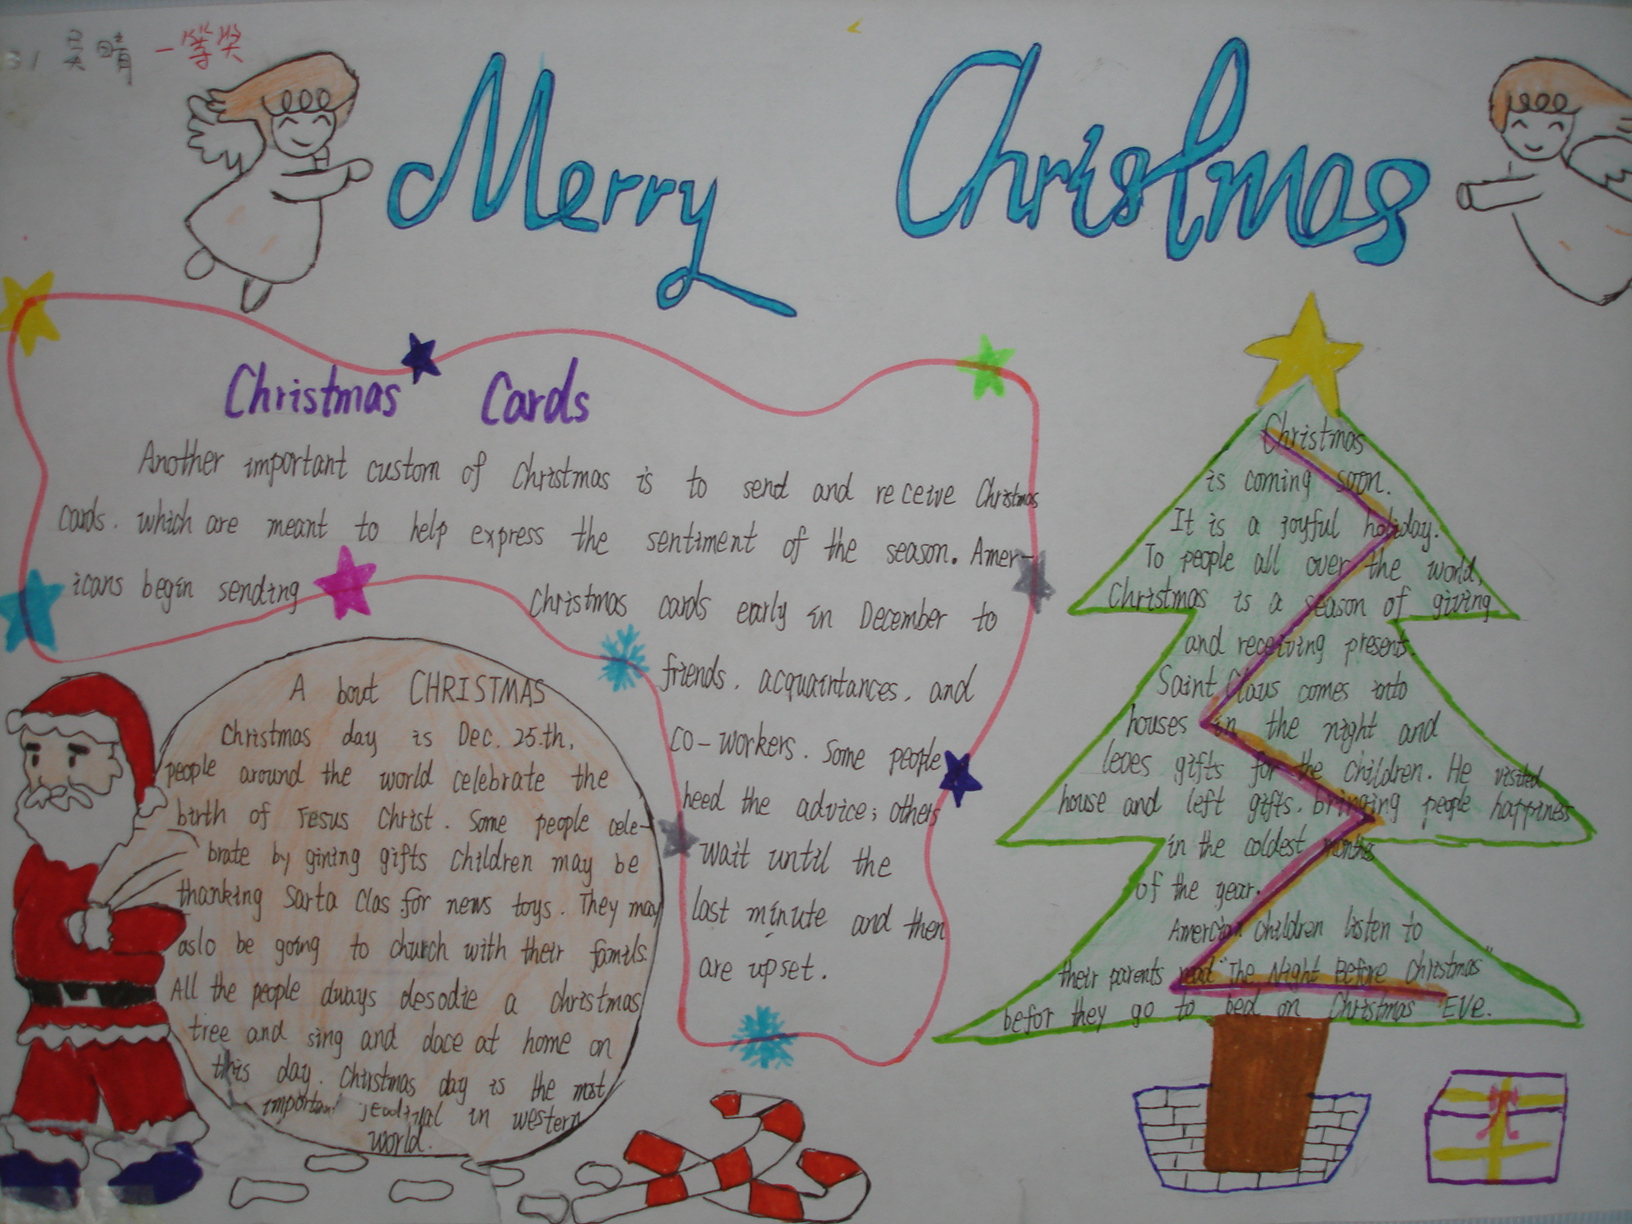 吴晴 一等奖
Merry Christmas
Christmas Cards
Another important custom of Christmas is to send and receive Christmas
cards. which are meant to help express the sentiment of the season. Amer-
icans begin sending Christmas cards early in December to
friends, acquaintances, and
co-workers. Some people
heed the advice; others
wait until the
last minute and then
are upset.
A bout CHRISTMAS
Christmas day is Dec. 25.th,
people around the world celebrate the
birth of Jesus Christ. Some people cele-
brate by gining gifts children may be
thanking Sarta Clas for news toys. They may
aslo be going to church with their famils.
All the people always desodie a christmas
tree and sing and dace at home on
this day. Christmas day is the most
important in western
world.
Christmas
is coming soon.
It is a joyful holiday.
To people all over the world,
Christmas is a season of giving
and receiving presents.
Saint Claus comes into
houses in the night and
leves gifts for the children. He visited
house and left gifts, bringing people happiness
in the coldest months
of the year.
American children listen to
their parents read "The Night Before Christmas"
befor they go to bed on Christmas Eve.